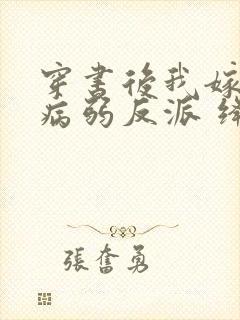 穿書後我嫁
病弱反派
張奮勇